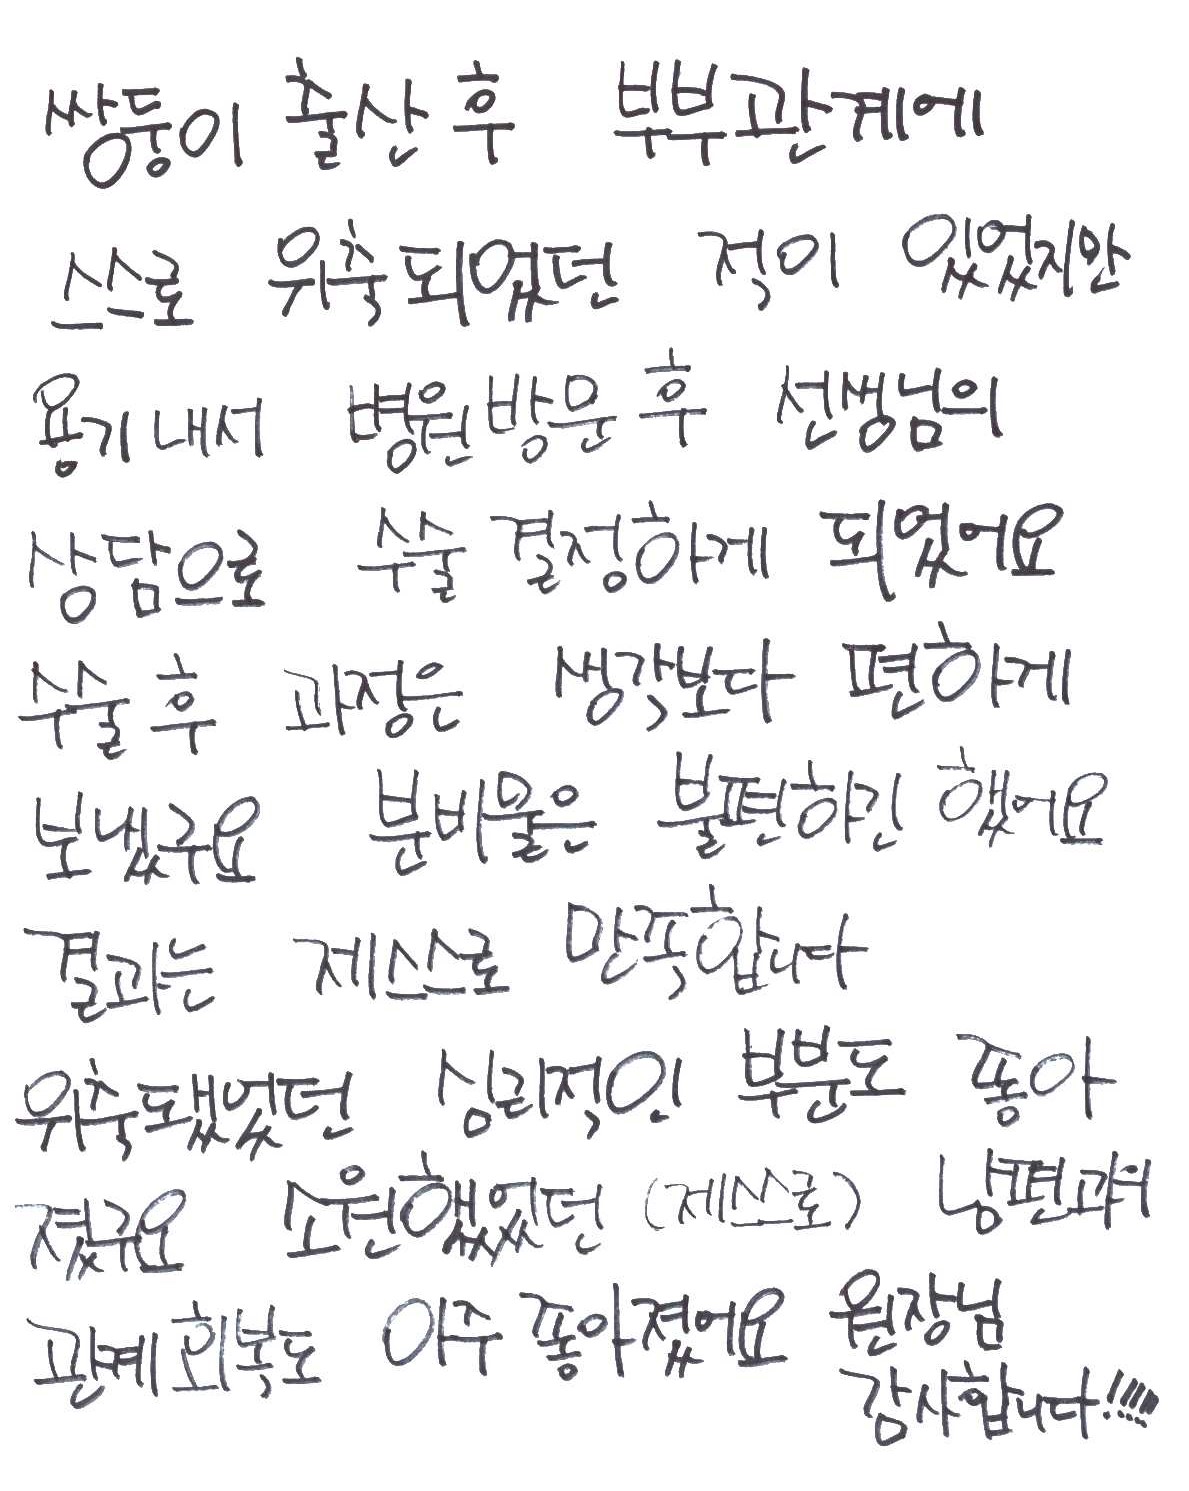 쌍둥이 출산 후 부부관계에
스스로 위축되었던 적이 있었지만
용기내서 병원 방문 후 선생님의
상담으로 수술 결정하게 되었어요
수술 후 과정은 생각보다 편하게
보냈구요 분비물은 불편하긴 했어요
결과는 제스스로 만족합니다
위축됐었던 심리적인 부분도 좋아
졌구요 소원했었던 (제스스로) 남편과의
관계 회복도 아주 좋아졌어요 원장님
감사합니다!!!!!